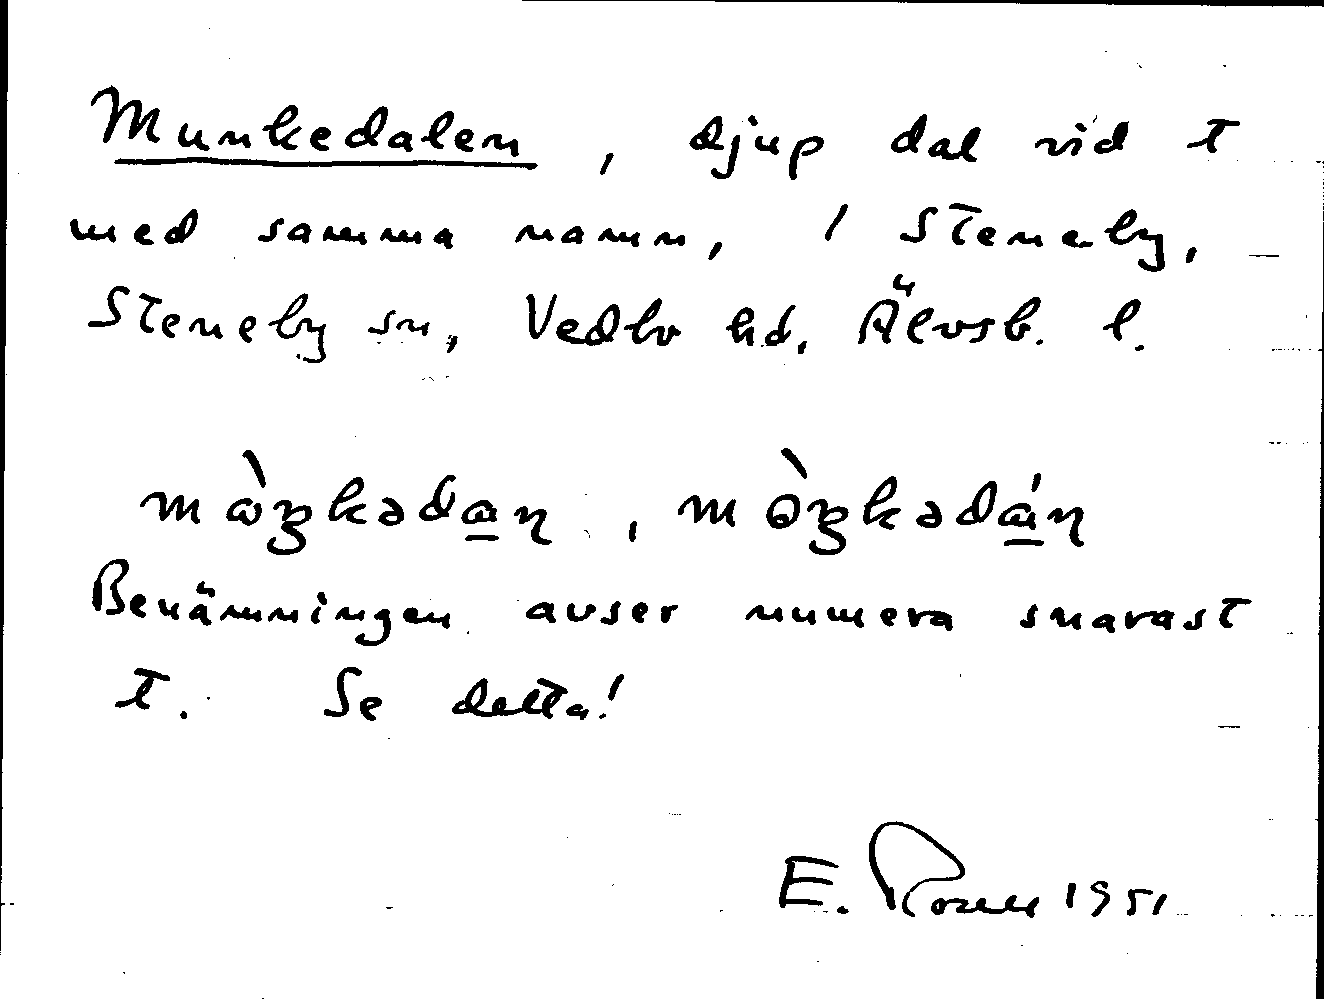 Munkedalen, djup dal vid t
med samma namn, / Steneby,
Steneby sn, Vedbo hd, Älvsb. l.
mὼꞑkəda̲ɳ, mòꞑkədá̲ɳ
Benämningen avser numera snarast
t. Se detta!
E. Rosell 1951